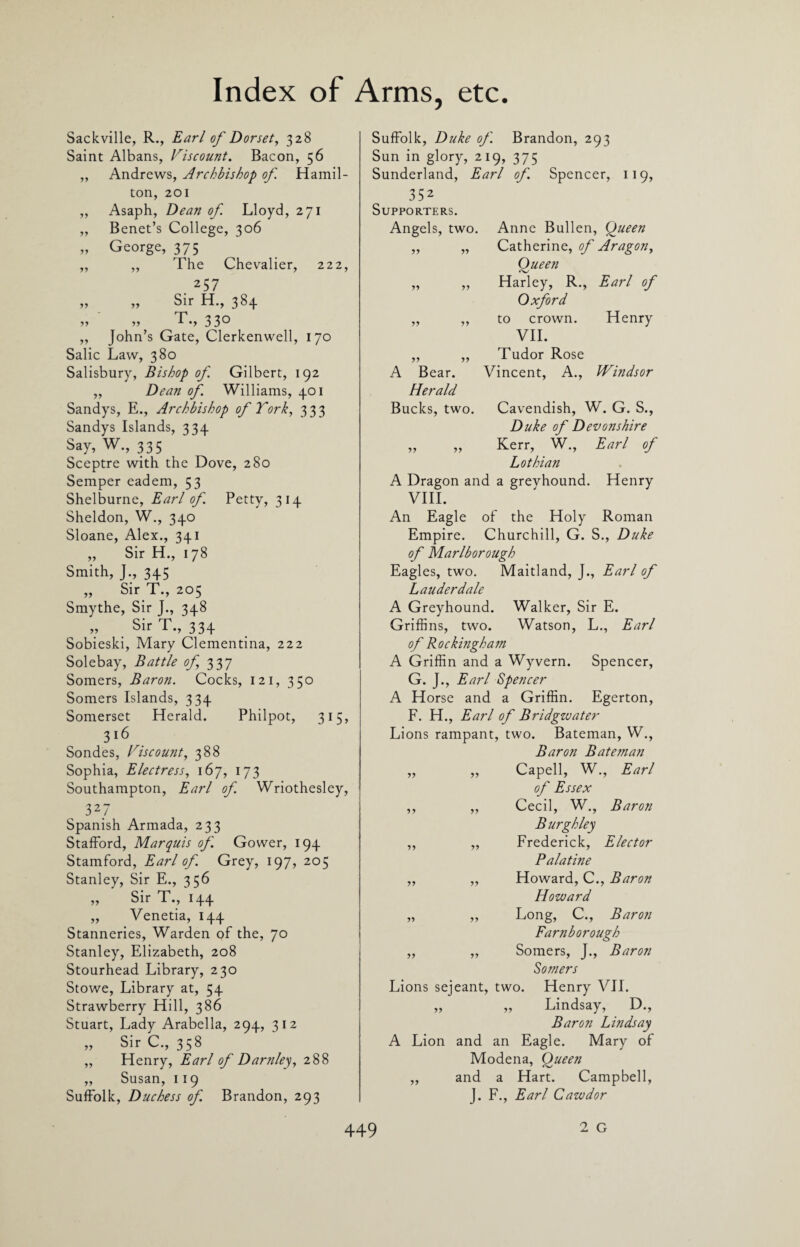 Index of Arms, etc.
Sackville, R., Earl of Dorset, 328
Saint Albans, Viscount. Bacon, 56
„ Andrews, Archbishop of. Hamil-
ton, 201
„ Asaph, Dean of. Lloyd, 271
„ Benet's College, 306
„ George, 375
„ „ The Chevalier, 222,
257
„ „ Sir H., 384
„ „ T., 330
„ John's Gate, Clerkenwell, 170
Salic Law, 380
Salisbury, Bishop of. Gilbert, 192
„ Dean of. Williams, 401
Sandys, E., Archbishop of York, 333
Sandys Islands, 334
Say, W., 335
Sceptre with the Dove, 280
Semper eadem, 53
Shelburne, Earl of. Petty, 314
Sheldon, W., 340
Sloane, Alex., 341
„ Sir H., 178
Smith, J., 345
„ Sir T., 205
Smythe, Sir J., 348
„ Sir T., 334
Sobieski, Mary Clementina, 222
Solebay, Battle of, 337
Somers, Baron. Cocks, 121, 350
Somers Islands, 334
Somerset Herald. Philpot, 315,
316
Sondes, Viscount, 388
Sophia, Electress, 167, 173
Southampton, Earl of. Wriothesley,
327
Spanish Armada, 233
Stafford, Marquis of. Gower, 194
Stamford, Earl of. Grey, 197, 205
Stanley, Sir E., 356
„ Sir T., 144
„ Venetia, 144
Stanneries, Warden of the, 70
Stanley, Elizabeth, 208
Stourhead Library, 230
Stowe, Library at, 54
Strawberry Hill, 386
Stuart, Lady Arabella, 294, 312
„ Sir C., 358
„ Henry, Earl of Darnley, 288
„ Susan, 119
Suffolk, Duchess of. Brandon, 293
Suffolk, Duke of. Brandon, 293
Sun in glory, 219, 375
Sunderland, Earl of. Spencer, 119,
352
Supporters.
Angels, two. Anne Bullen, Queen
„ „ Catherine, of Aragon,
Queen
„ „ Harley, R., Earl of
Oxford
„ „ to crown. Henry
VII.
„ „ Tudor Rose
A Bear. Vincent, A., Windsor
Herald
Bucks, two. Cavendish, W. G. S.,
Duke of Devonshire
„ „ Kerr, W., Earl of
Lothian
A Dragon and a greyhound. Henry
VIII.
An Eagle of the Holy Roman
Empire. Churchill, G. S., Duke
of Marlborough
Eagles, two. Maitland, J., Earl of
Lauderdale
A Greyhound. Walker, Sir E.
Griffins, two. Watson, L., Earl
of Rockingham
A Griffin and a Wyvern. Spencer,
G. J., Earl Spencer
A Horse and a Griffin. Egerton,
F. H., Earl of Bridgwater
Lions rampant, two. Bateman, W.,
Baron Bateman
„ „ Capell, W., Earl
of Essex
„ „ Cecil, W., Baron
Burghley
„ „ Frederick, Elector
Palatine
„ „ Howard, C., Baron
Howard
„ „ Long, C., Baron
Farnborough
„ „ Somers, J., Baron
Somers
Lions sejeant, two. Henry VII.
„ „ Lindsay, D.,
Baron Lindsay
A Lion and an Eagle. Mary of
Modena, Queen
„ and a Hart. Campbell,
J. F., Earl Cawdor
449
2 G